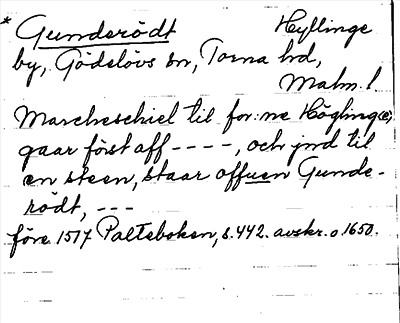 * Gunderödt Hyllinge
by, Gödelövs sn, Torna hd,
Malm. l.
Marcheschiel til for:ne Högling(e)
gaar först aff - - - -, och jnd til
en steen, staar offuen Gunde-
rödt, - - -
före 1517 Palteboken, s. 442. avskr. o 1650.